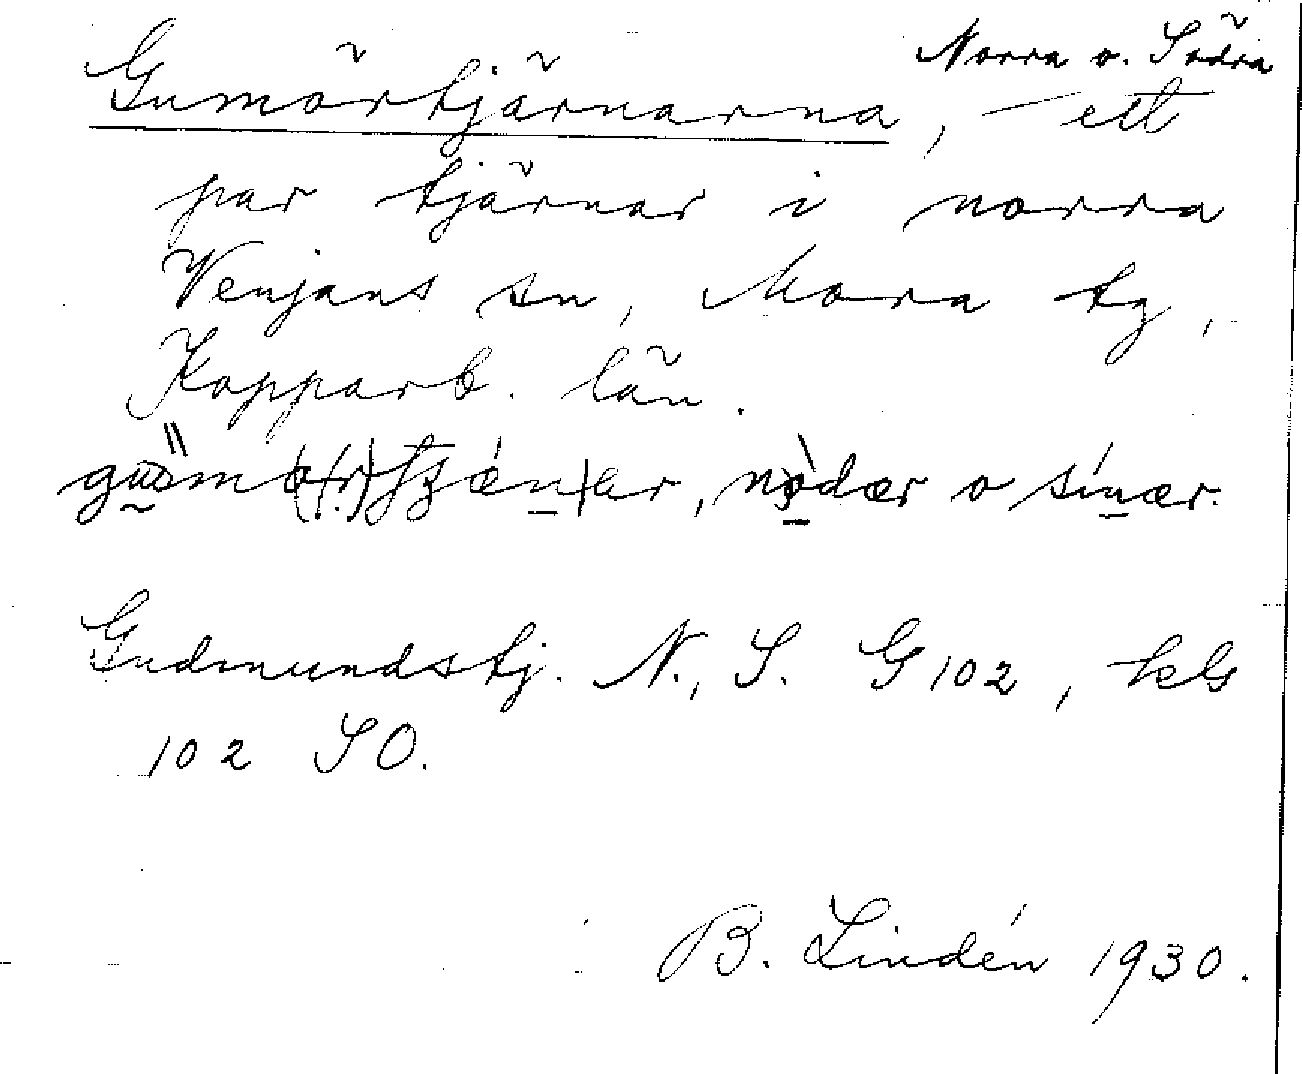 Gumörtjärnarna, Norra o. Södra – ett
par tjärnar i norra
Venjans sn, Mora tg,
Kopparb. län.
o
Gudmundstj. N., S. G 102, kls
102 SO.
B. Lindén 1930.